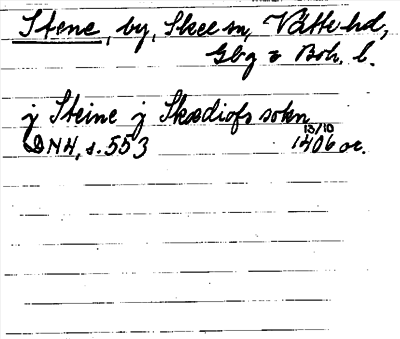 Stene, by, Skee sn, Vätte hd,
Gbg o Boh. l.
j Steine j Skædiofs sokn
13/10
DN4, s. 553 1406 or.